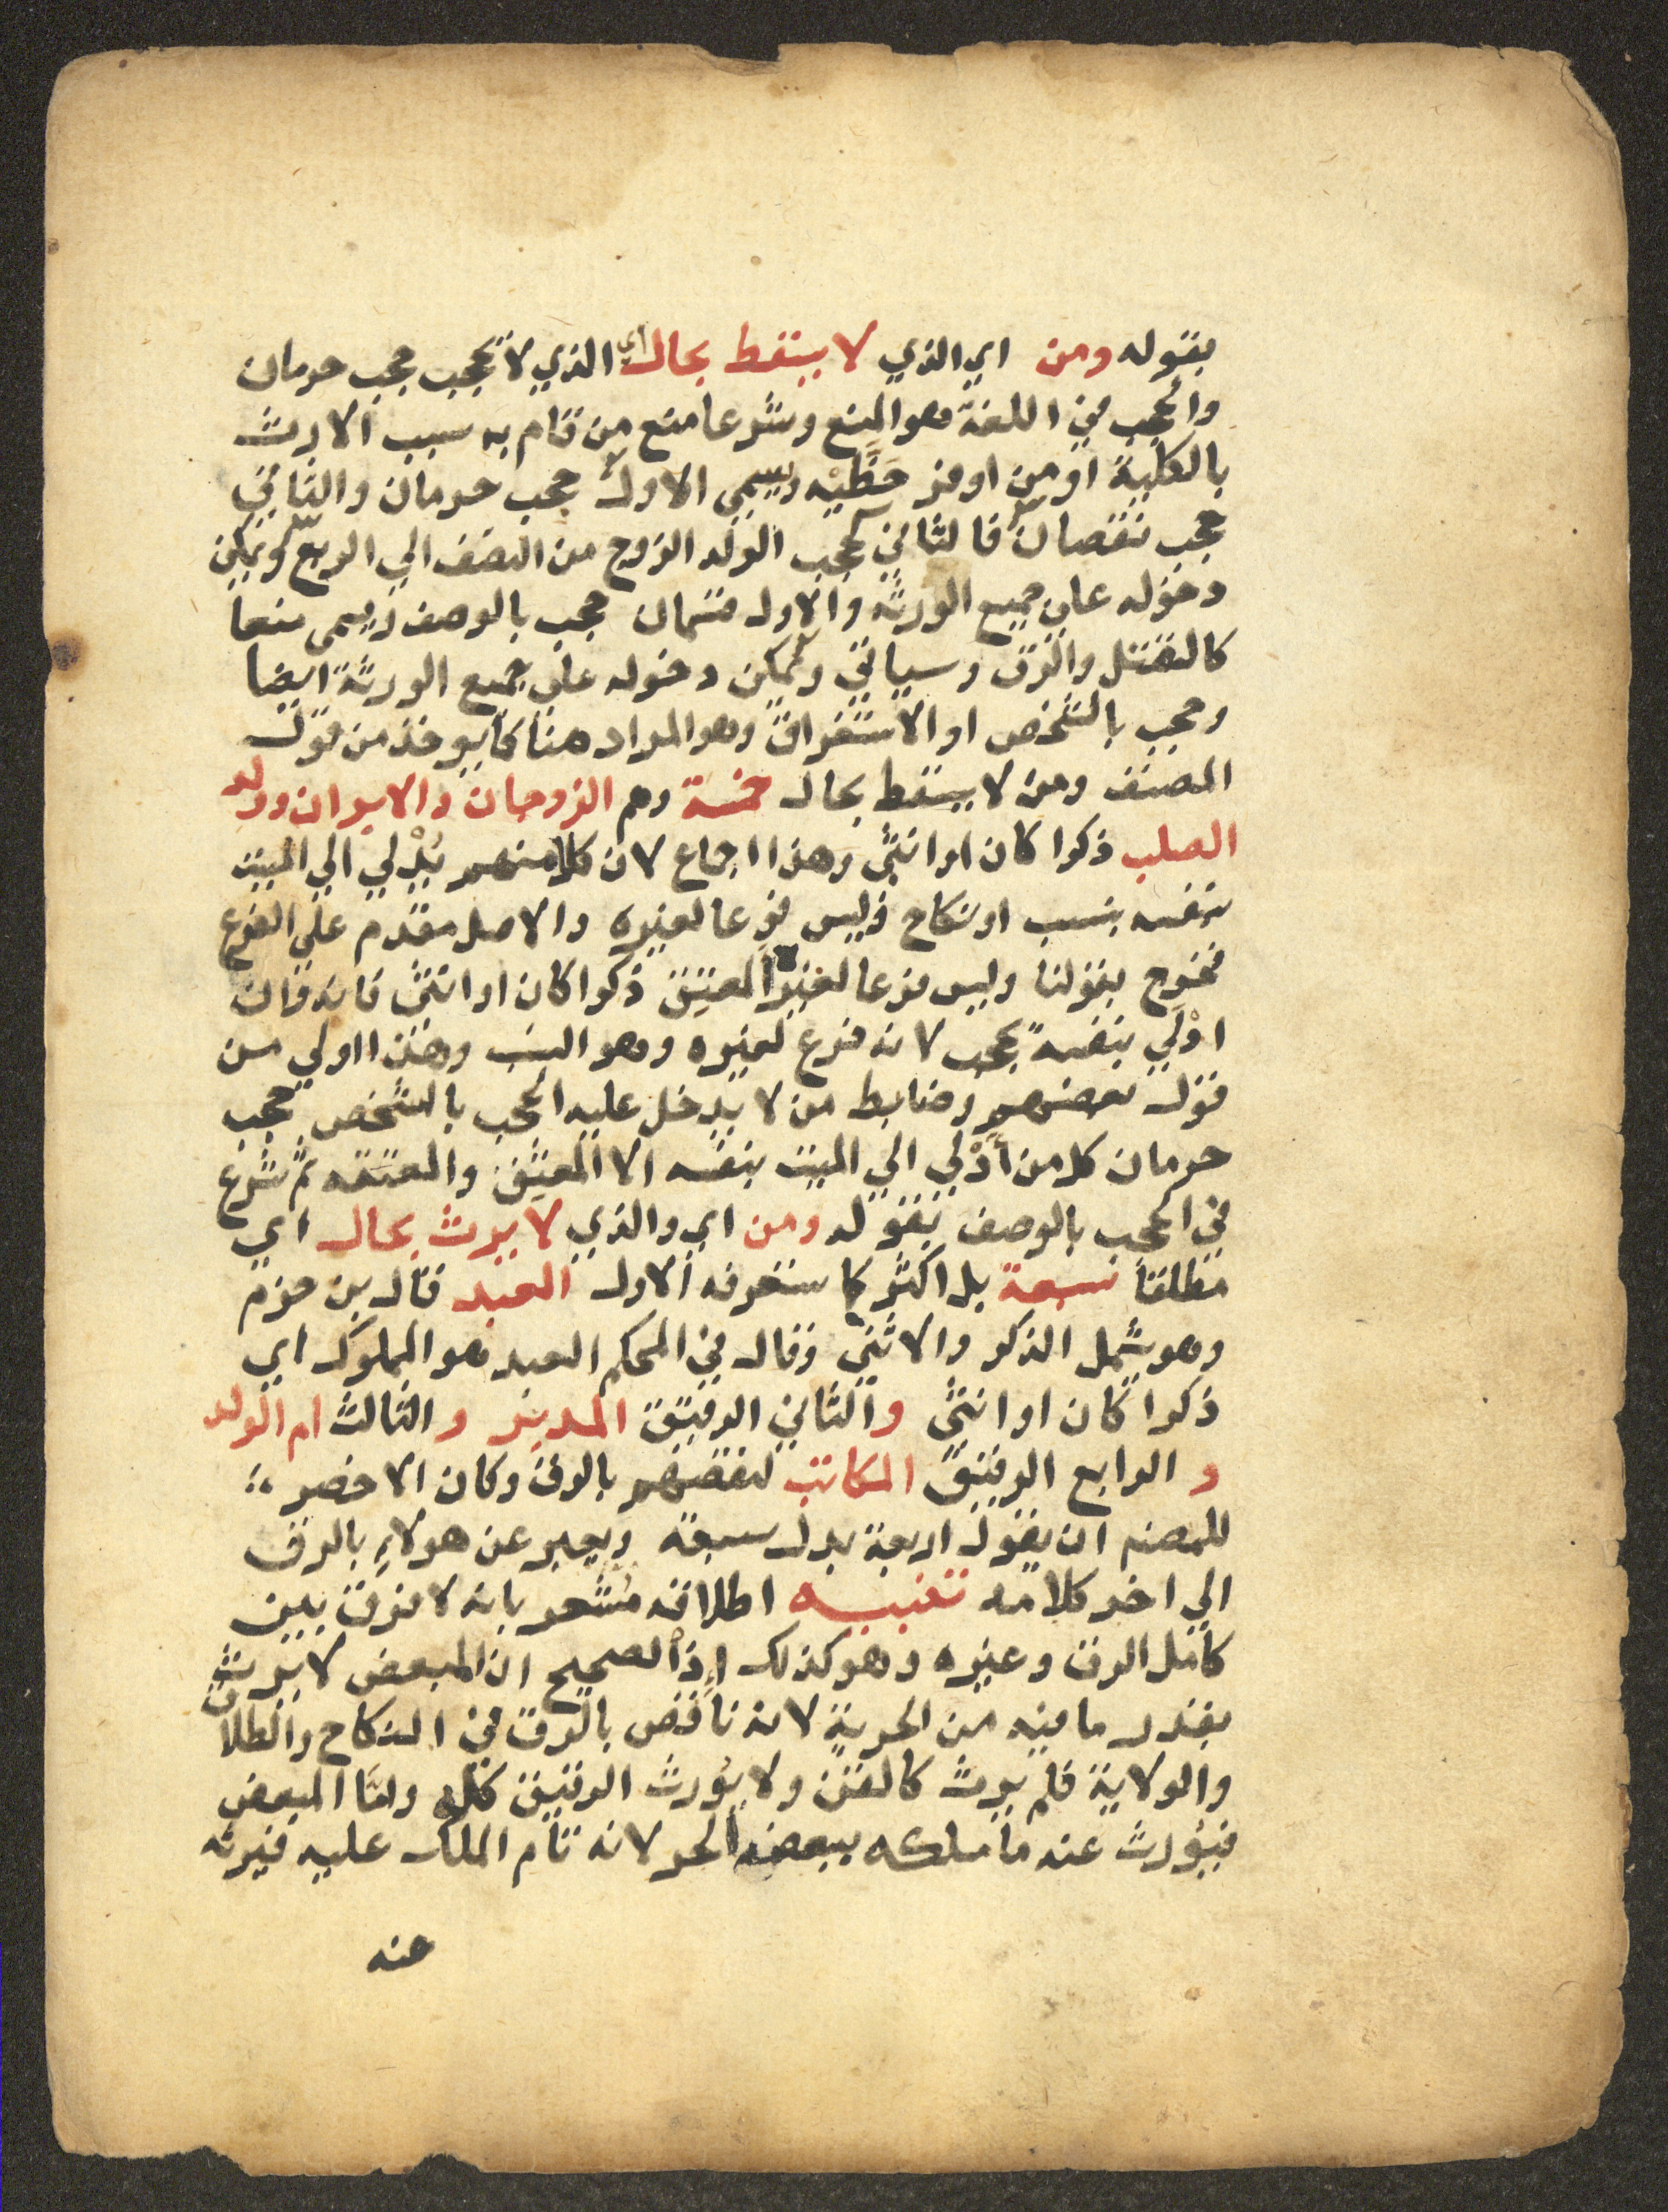 بقوله ومن اي الذي لا يسقط بحال اي الذي لا يحجب حجب حرمان
والحجب في اللغة هو المنع وشرعا منع من قام به سبب الارث
بالكلية او من اوفر حَظَّيْه ويسمى الاول حجب حرمان والثاني
حجب نقصان فالثاني كحجب الولد الزوج من النصف الي الربع ويمكن
دخوله على جميع الورثة والاول قسمان حجب بالوصف ويسمى منعا
كالقتل والرق وسياتي ويمكن دخوله على جميع الورثة ايضا
وحجب بالشخص او الاستغراق وهو المراد هنا كما يوخذ من قول
المصنف ومن لا يسقط بحال خمسة وهم الزوجان والابوان وولد
الصلب ذكرا كان او انثى وهذا اجماع لان كلا منهم يُدْلي الي الميت
بنفسه بنسب او نكاح وليس فرعا لغيره والاصل مقدم على الفرع
فخرج بقولنا وليس فرعا لغيره المعتق ذكرا كان او انثى فانه وان
ادْلي بنفسه يحجب لانه فرع لغيره وهو النسب وهذا اولي من
قول بعضهم وضابط من لا يدخل عليه الحجب بالشخص حجب
حرمان كل من أَدْلي الي الميت بنفسه الا المعتق والمعتقه ثم شرع
في الحجب بالوصف بقوله ومن اي والذي لا يرث بحال اي
مطلقا سبعة بل اكثر كما ستعرفه الاول العبد قال بن حزم
وهو يشمل الذكر والانثى وقال في المحكم العبد هو المملوك اي
ذكرا كان او انثى والثاني الرقيق المدبر والثالث ام الولد
والرابع الرقيق المكاتب لنقصهم بالرق وكان الاخصر
للمصنف ان يقول اربعة بدل سبعة ويعبر عن هولاءِ بالرق
الي اخر كلامه تنبيه اطلاقه مُشْعر بانه لا فرق بين
كامل الرق وغيره وهو كذلك إذ الصحيح ان المبعض لا يرث
بقدر ما فيه من الحرية لانه ناقص بالرق في النكاح والطلاق
والولاية فلم يرث كالقن ولا يُورث الرقيق كله وامَّا المبعض
فيورث عنه ما ملكه ببعضه الحر لانه تام الملك عليه فيرثه
عنه